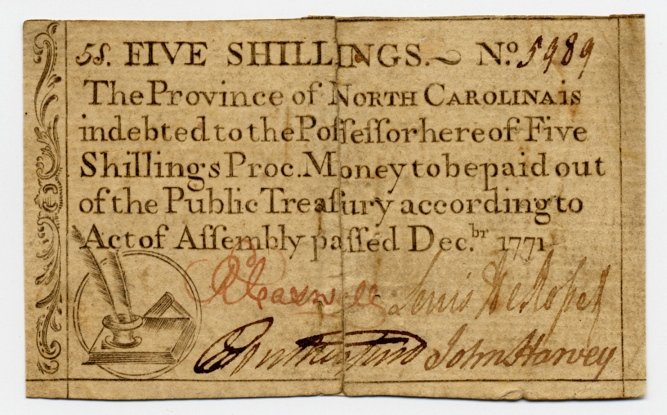 5s. FIVE SHILLINGS.~ No. 5989
The Province of NORTH CAROLINA is
indebted to the Poſſeſſor hereof Five
Shillings Proc. Money to be paid out
of the Public Treaſury according to
Act of Aſſembly paſſed Dec.br 1771
RCaswell Lewis De Rosset
Rutherfurd John Harvey